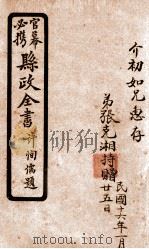 介初如兄惠存
弟張克湘持贈
民國十六年一月
廿五日
官幕
必携
縣政全書